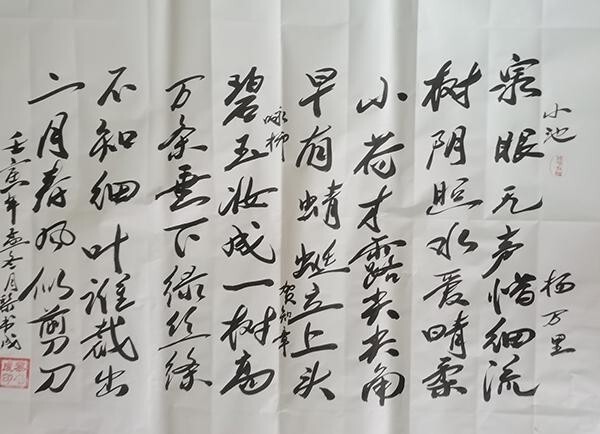 小池
杨万里
泉眼无声惜细流
树阴照水爱晴柔
小荷才露尖尖角
早有蜻蜓立上头
咏柳
贺知章
碧玉妆成一树高
万条垂下绿丝绦
不知细叶谁裁出
二月春风似剪刀
壬寅年孟冬月
书成